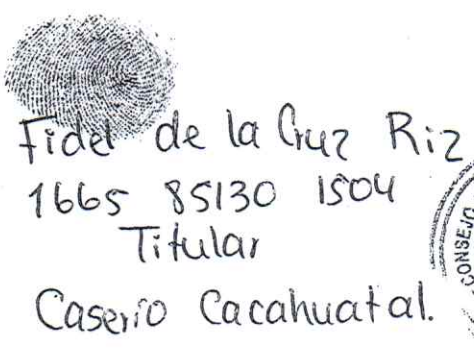 Fidel de la Cruz Riz
1665 85130 1504
Titular
Caserio Cacahuatal.
CONSEJO